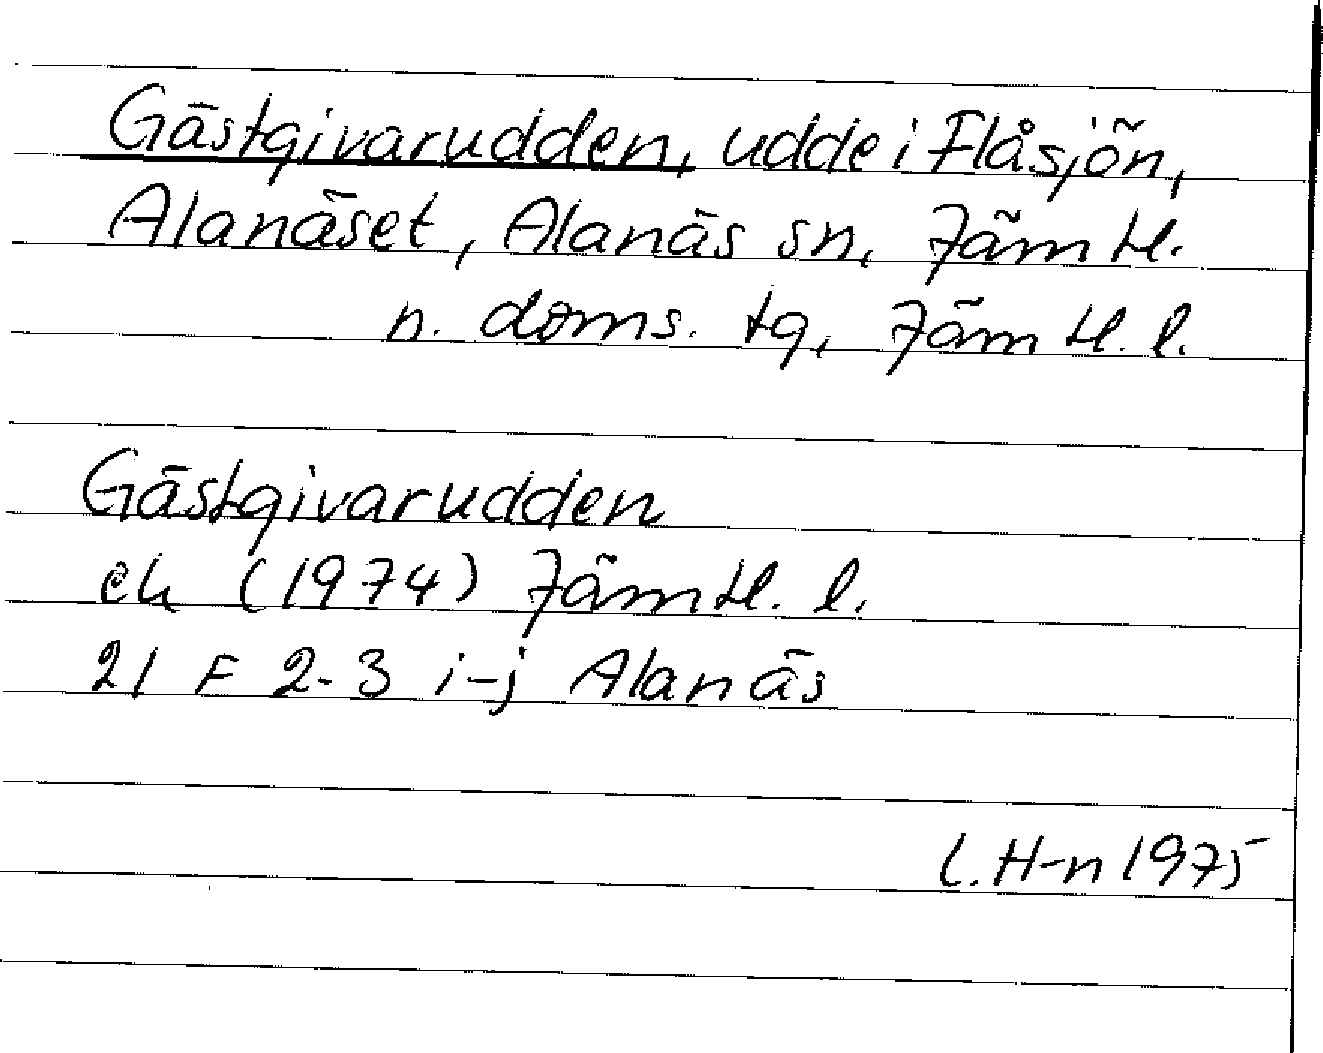 Gästgivarudden, udde i Flåsjön,
Alanäset, Alanäs sn, Jämtl.
n. doms. tg, Jämtl. l.
Gästgivarudden
ek (1974) Jämtl. l.
21 F 2-3 i-j Alanäs
L. H-n 1975